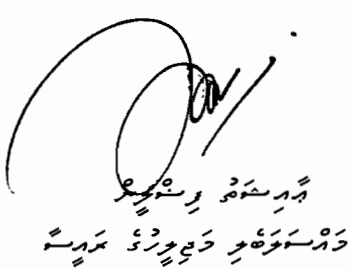 ޢާއިޝަތު ފިޟްލީން
މައްސަލަބެލި މަޖިލީހުގެ ރައީސާ